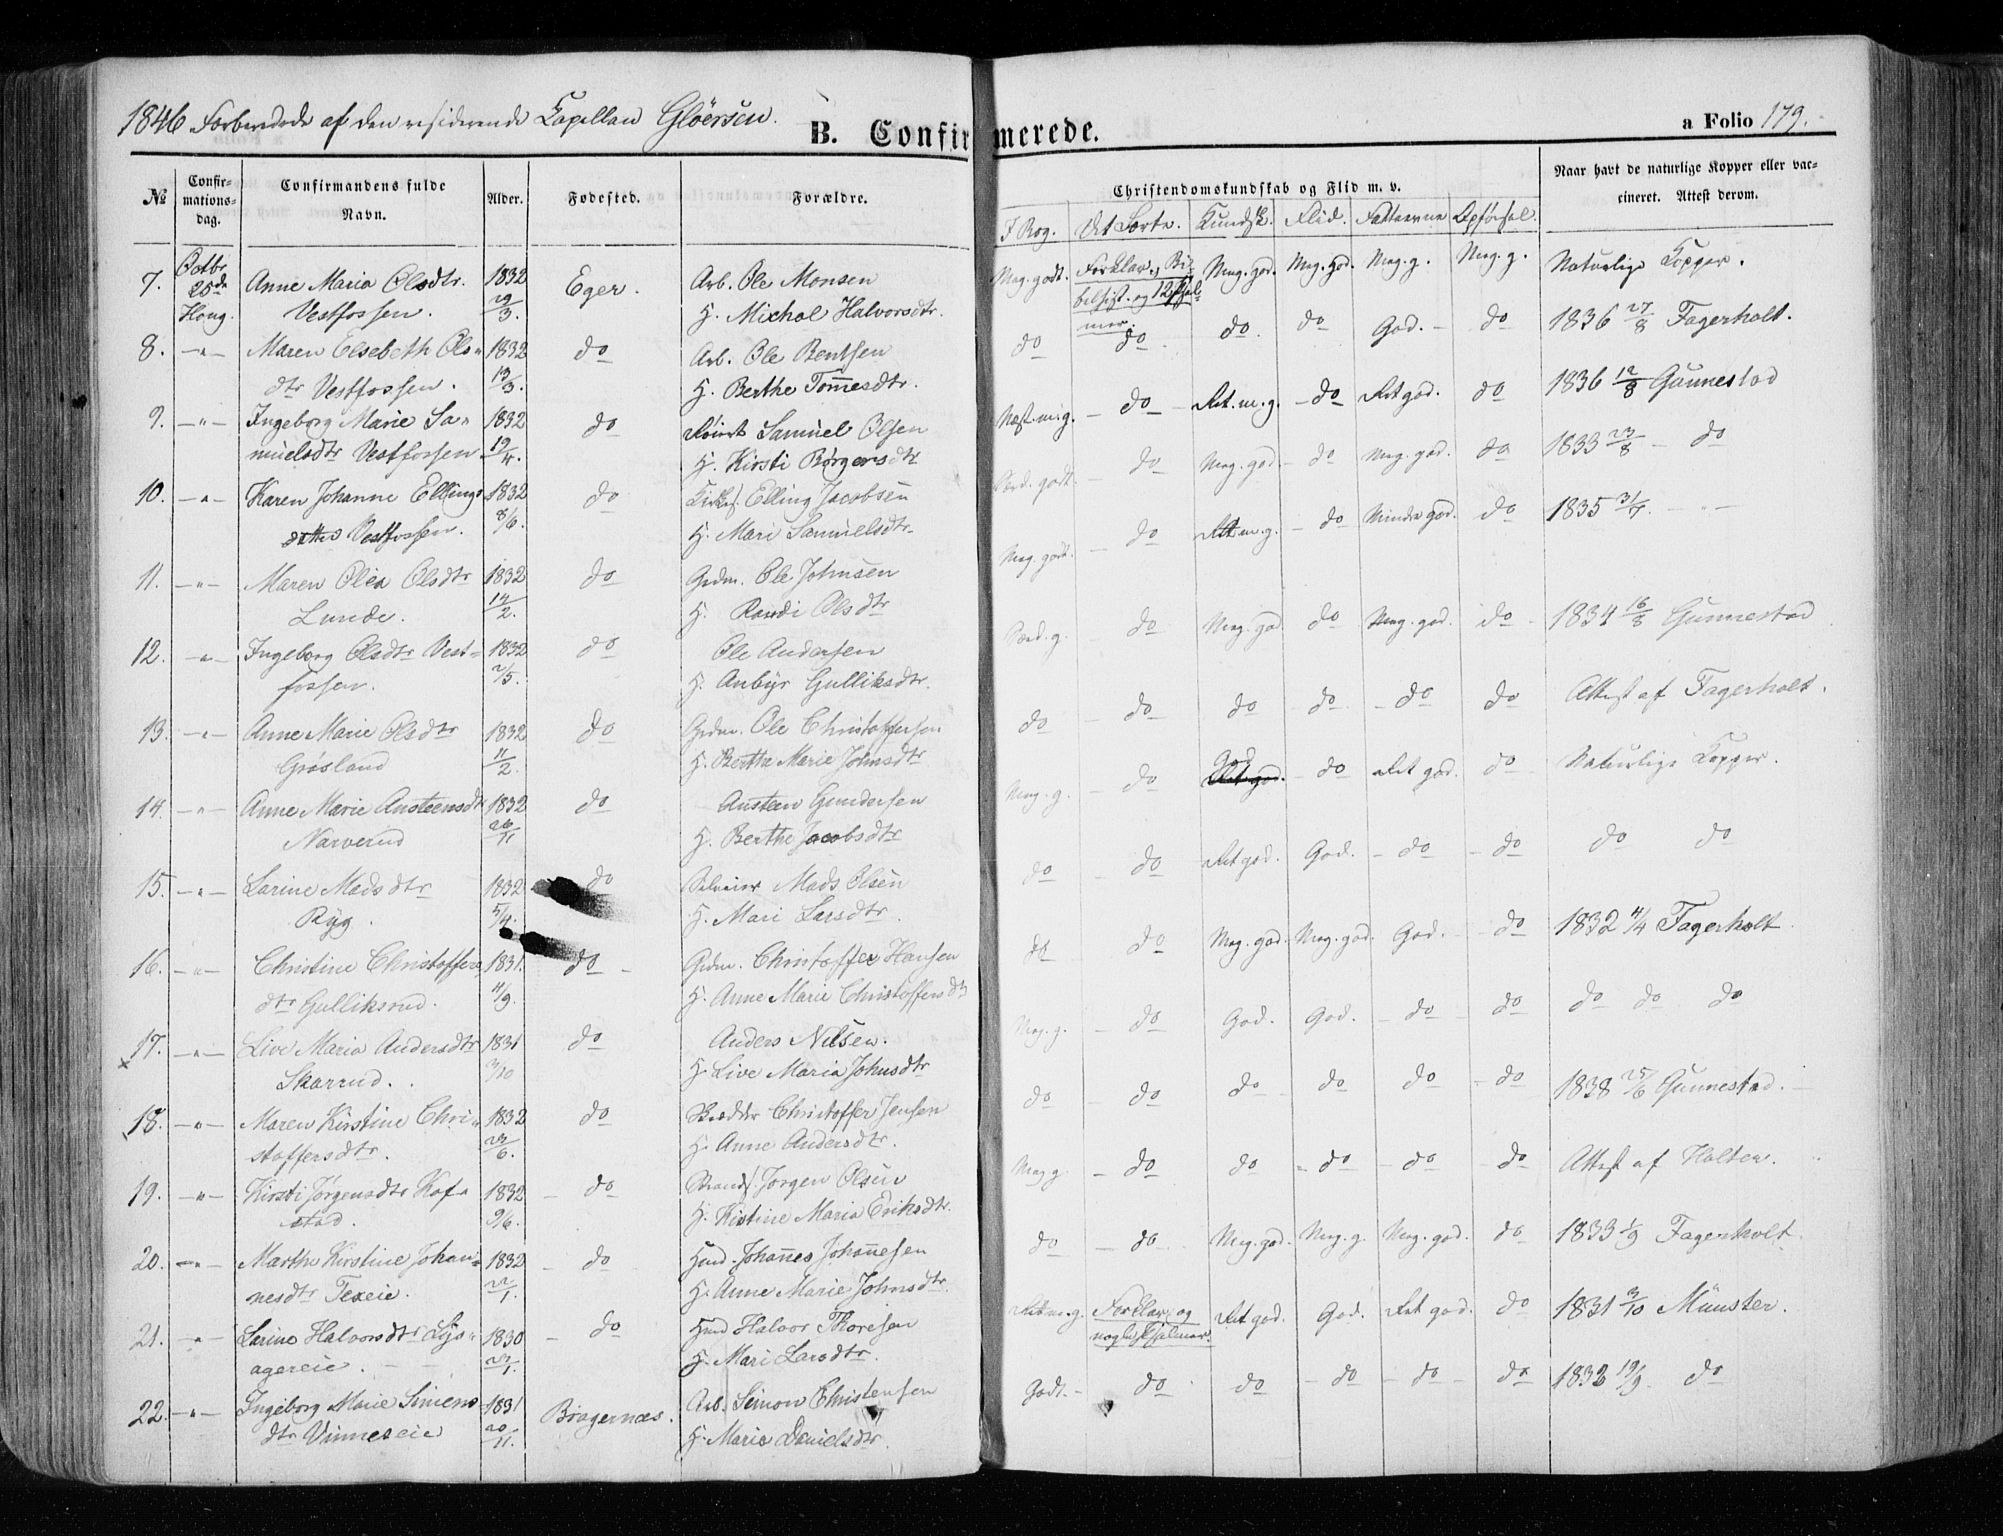 1846 Forberedede af den residerende Capellan Gløersen.
B. Confirmerede.
a Folio 179.
№
Confir-
mations-
dag.
Confirmandens fulde
Navn.
Alder.
Fødested.
Forældre.
Christendomskundskab og Flid m. v.
Naar havt de naturlige Kopper eller vac-
cineret. Attest derom.
I Bog. Det Lærte. Kundsk. Flid. Fatteevne Opførsel.
7. Octbr 25de Houg. Anne Maria Olsdtr. 1832 Eger. Arb. Ole Monsen Meg. godt. Forklar. Bi- Meg. god. Meg. god. Meg. g. Meg. g. Naturlige Kopper.
Vestfossen. 29/3. H. Michol Halvorsdtr. belhist. og 12 Psal-
mer.
8. -"- Maren Elsebeth Ols- 1832 do Arb. Ole Bentsen do do do do God. do 1836 27/8 Fagerholt.
dtr Vestfossen. 13/3. H. Berthe Tom̅esdtr.
9. -"- Ingeborg Marie Sa- 1832 do Samuel Olsen Næst. m. g. do Ret. m. g. do Ret god. do 1836 12/8 Gunnestad
muelsdtr Vestfossen 19/4. H. Kirsti Børgersdtr
10. -"- Karen Johanne Ellings 1832 do Elling Jacobsen godt. do Meg. god. do Meg. god. do 1833 23/8 do
datter Vestfossen. 8/6. H. Mari Samuelsdtr.
11. -"- Maren Olea Olsdtr 1832 do Grdm. Ole Johnsen Meg. godt. do Ret m. g. do Mindre god. do 1835 3/7 -"-
Lunde. 14/2. H. Randi Olsdtr
12. -"- Ingeborg Olsdtr Vest- 1832 do Ole Andersen g. do Meg. god do Meg. god. do 1834 16/8 Gunnestad
fossen. 2/5. H. Anbjr Gulliksdtr.
13. -"- Anne Marie Olsdtr 1832 do Grdm. Ole Christoffersen do do do do do do Attest af Fagerholt.
Grøsland 11/2. H. Berthe Marie Johnsdtr
14. -"- Anne Marie Austeensdtr 1832 do Austeen Gundersen Meg. g. do God Ret god. do Ret god. do Naturlige Kopper.
Narverud 26/11 H. Berthe Jacobsdtr
15. -"- Larine Madsdtr 1832 do Mads Olsen do do Ret god. God. do do do do
Ryg. 5/4. H. Mari Larsdtr.
16. -"- Christine Christoffers 1831. do Grdm. Christoffer Hansen do do Meg. god. Meg. god. God. do 1832 4/4 Fagerholt
dtr Gulliksrud. 4/9. H. Anne Marie Christoffersdtr
17. -"- Live Maria Andersdtr 1831 do Anders Nilsen. Meg. g. do God. God. do do do do do
Skarrud. 3/10 H. Live Maria Johnsdtr
18. -"- Maren Kirstine Chri- 1832 do Christoffer Jensen do do do do do do 1838 25/6 Gunnestad.
stoffersdtr. 23/6. H. Anne Andersdtr.
19. -"- Kirsti Jørgensdtr Hof- 1832 do Jørgen Olsen Meg g. do do do do do Attest af Holter.
stad. 9/6. H. Kistine Maria Eriksdtr.
20. -"- Marthe Kirstine Johan- 1832 do Huusd. Johan̅es Johan̅esen do do Meg. god. Meg. g. Meg. god. do 1833 1/9 Fagerholt.
nesdtr Texeie. 22/1. H. Anne Marie Johnsdtr.
21. -"- Larine Halvorsdtr Lys- 1830 do Huusd Halvor Thoresen Ret m. g. Forklar. og Ret god. God. Ret god. do 1831 3/10 Münster.
agereie. 23/1. H. Mari Larsdtr. nogle Psalmer.
22. -"- Ingeborg Marie Simens 1831 Bragernæs. Arb. Simon Christensen Godt. do do do do do 1832 19/9. do
dtr Vinneseie 20/11. H. Marie Danielsdtr.